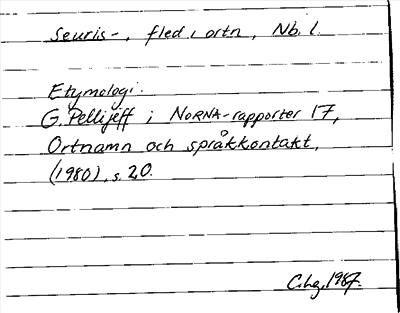 Seuris-, fled i ortn, Nb. l.
Etymologi.
G. Pellijeff i NORNA-rapporter 17,
Ortnamn och språkkontakt,
(1980), s. 20.
1987.